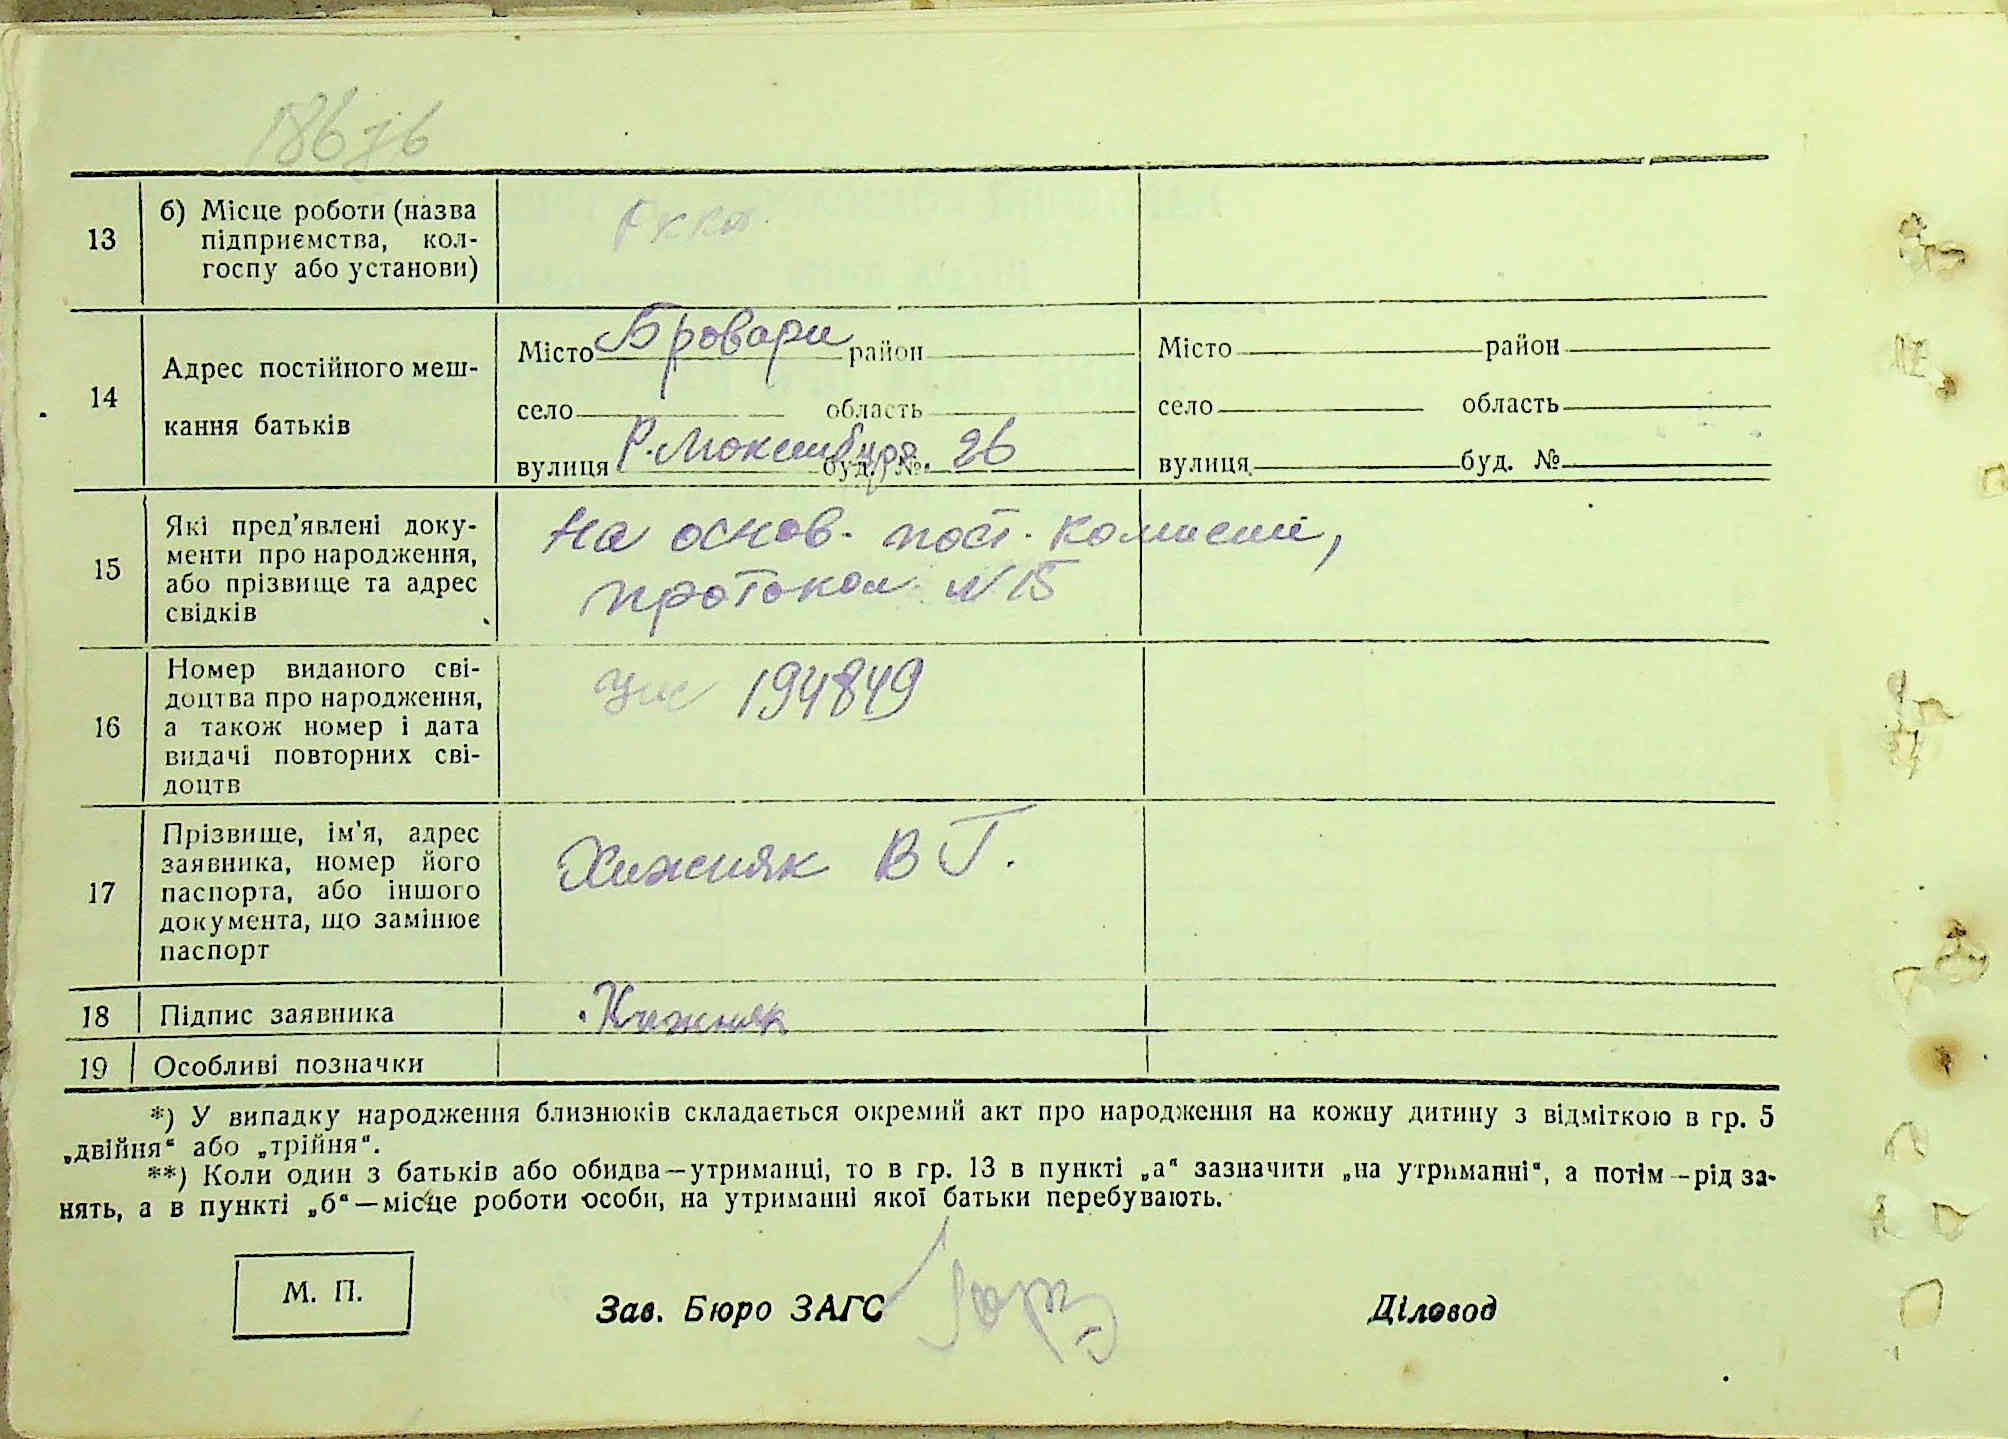 186 зв
13
б) Місце роботи (назва
підприємства, кол-
госпу або установи)
14
Адрес постійного меш-
кання батьків
Місто Бровари район
село область
вулиця Р. Люксембург буд. № 26
Місто район
село область
вулиця буд. №
15
Які пред'явлені доку-
менти про народження,
або прізвище та адрес
свідків
На основ. пост. комисии,
протокол N 15
16
Номер виданого сві-
доцтва про народження,
а також номер і дата
видачі повторних сві-
доцтв
194849
17
Прізвище, ім'я, адрес
заявника, номер його
паспорта, або іншого
документа, що замінює
паспорт
Хижняк В Г.
18
Підпис заявника
Хижняк
19
Особливі позначки
*) У випадку народження близнюків складається окремий акт про народження на кожну дитину з відміткою в гр. 5
„двійня“ або „трійня“.
**) Коли один з батьків або обидва—утриманці, то в гр. 13 в пункті „а“ зазначити „на утриманні“, а потім—рід за-
нять, а в пункті „б“—місце роботи особи, на утриманні якої батьки перебувають.
М. П.
Зав. Бюро ЗАГС
Діловод